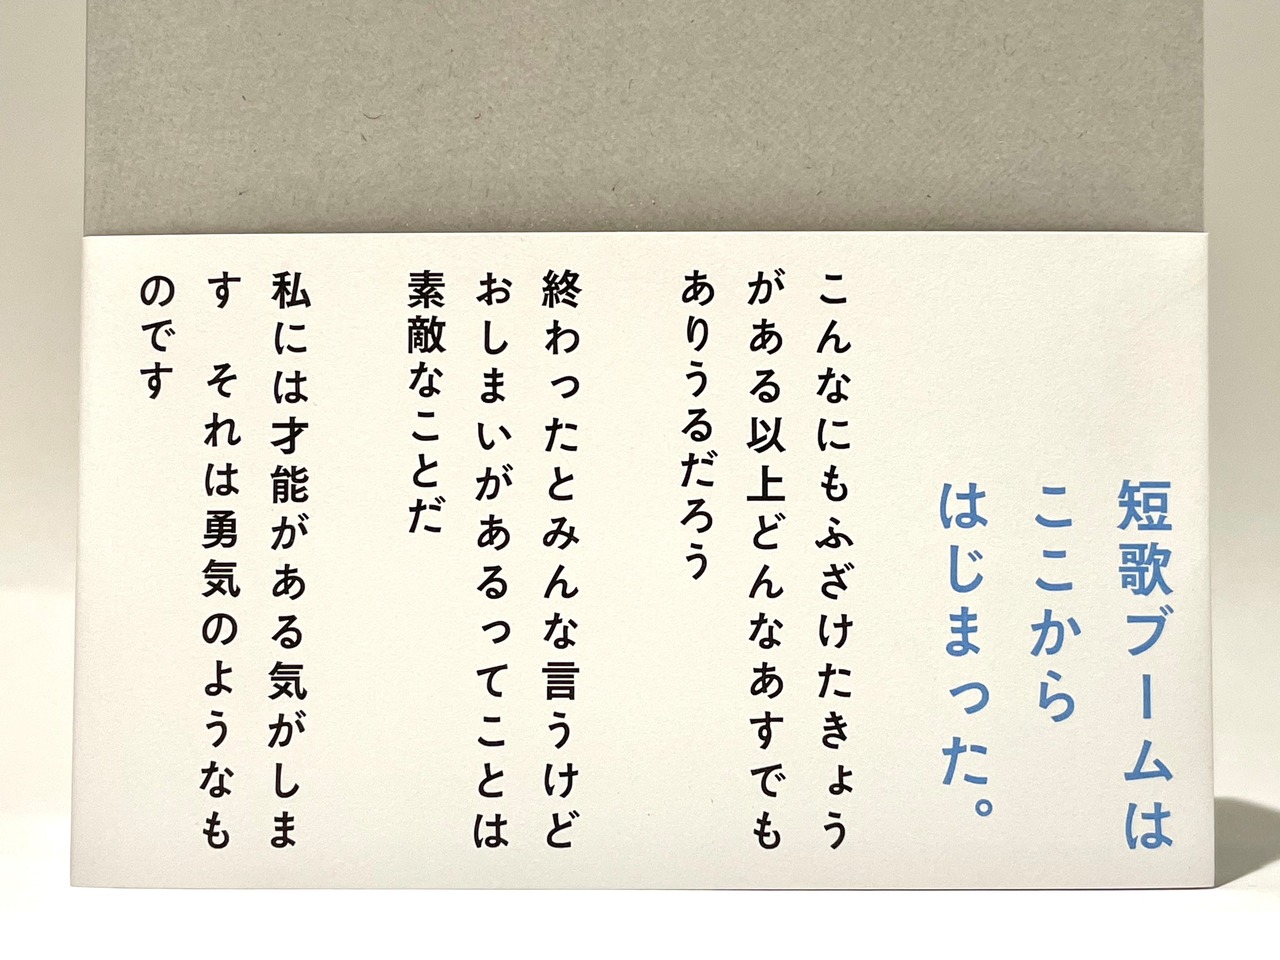 短歌ブームは
ここから
はじまった。
こんなにもふざけたきょう
がある以上どんなあすでも
ありうるだろう
終わったとみんな言うけど
おしまいがあるってことは
素敵なことだ
私には才能がある気がしま
す　それは勇気のようなも
のです